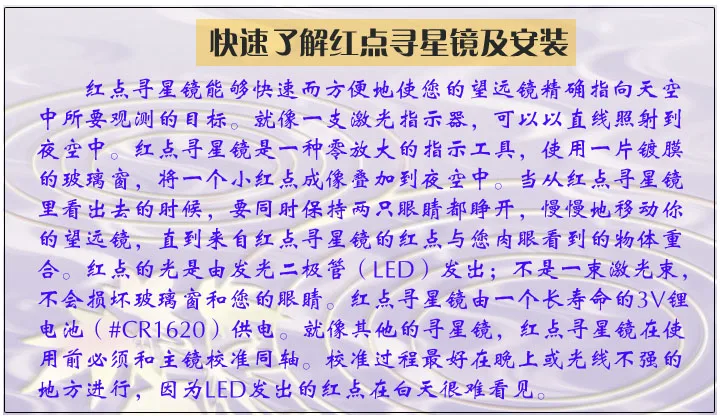 快速了解红点寻星镜及安装
红点寻星镜能够快速而方便地使您的望远镜精确指向天空
中所要观测的目标。就像一支激光指示器，可以以直线照射到
夜空中。红点寻星镜是一种零放大的指示工具，使用一片镀膜
的玻璃窗，将一个小红点成像叠加到夜空中。当从红点寻星镜
里看出去的时候，要同时保持两只眼睛都睁开，慢慢地移动你
的望远镜，直到来自红点寻星镜的红点与您肉眼看到的物体重
合。红点的光是由发光二极管（LED）发出；不是一束激光束，
不会损坏玻璃窗和您的眼睛。红点寻星镜由一个长寿命的3V锂
电池（#CR1620）供电。就像其他的寻星镜，红点寻星镜在使
用前必须和主镜校准同轴。校准过程最好在晚上或光线不强的
地方进行，因为LED发出的红点在白天很难看见。